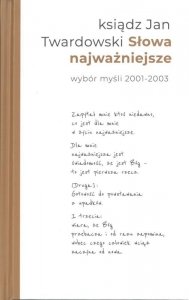 ksiądz Jan
Twardowski Słowa
najważniejsze
wybór myśli 2001-2003
Zapytał mnie ktoś niedawno,
co jest dla mnie
w życiu najważniejsze.
Dla mnie
najważniejsza jest
świadomość, że jest Bóg –
to jest pierwsza rzecz.
(Druga):
Gotowość do powstawania
z upadku.
I trzecia:
wiara, że Bóg
przebacza i od razu zapomina,
wobec czego człowiek wciąż
zaczyna od nowa.